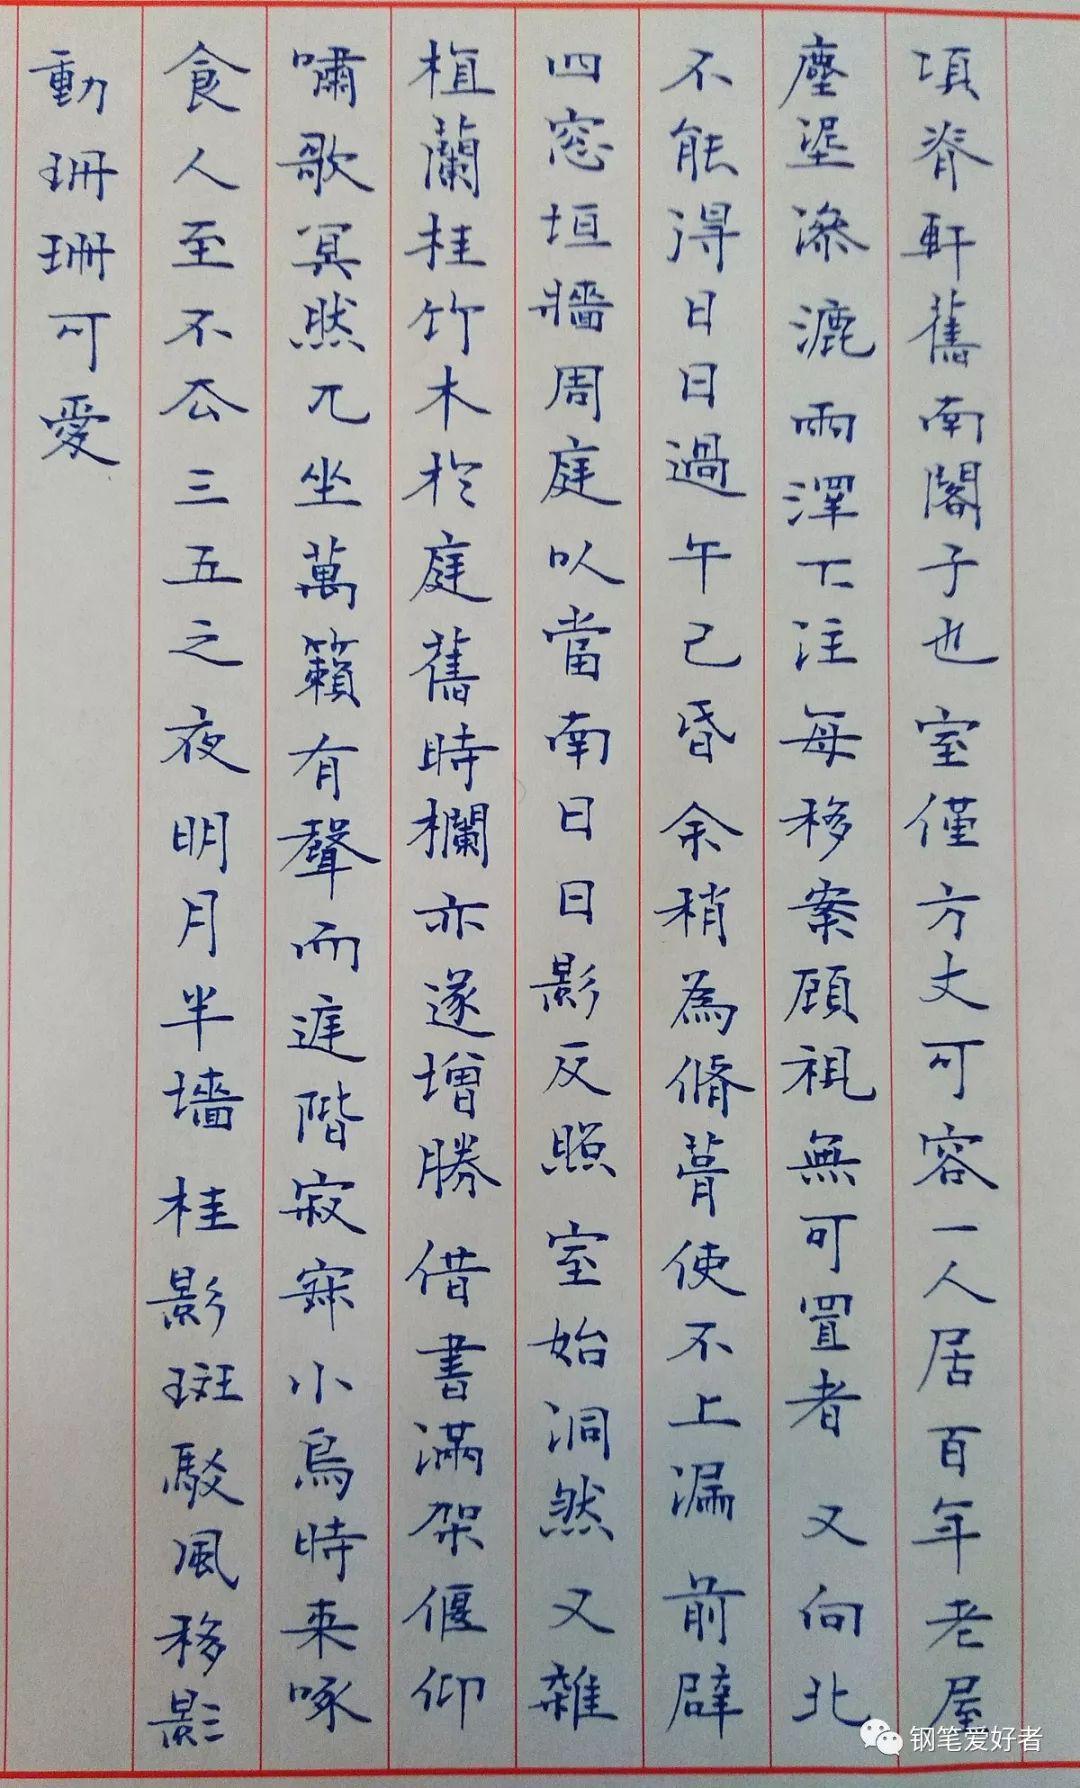 項脊軒舊南閣子也室僅方丈可容一人居百年老屋
塵埿滲漉雨澤下注每移案頋視無可置者又向北
不能得日日過午已昏余稍為脩葺使不上漏前辟
四窓垣牆周庭以當南日日影反照室始洞然又雜
植蘭桂竹木於庭舊時欄亦遂增勝借書滿架偃仰
嘯歌冥然兀坐萬籟有聲而庭階寂寂小鳥時来啄
食人至不去三五之夜明月半墻桂影斑駁風移影
動珊珊可愛
钢笔爱好者